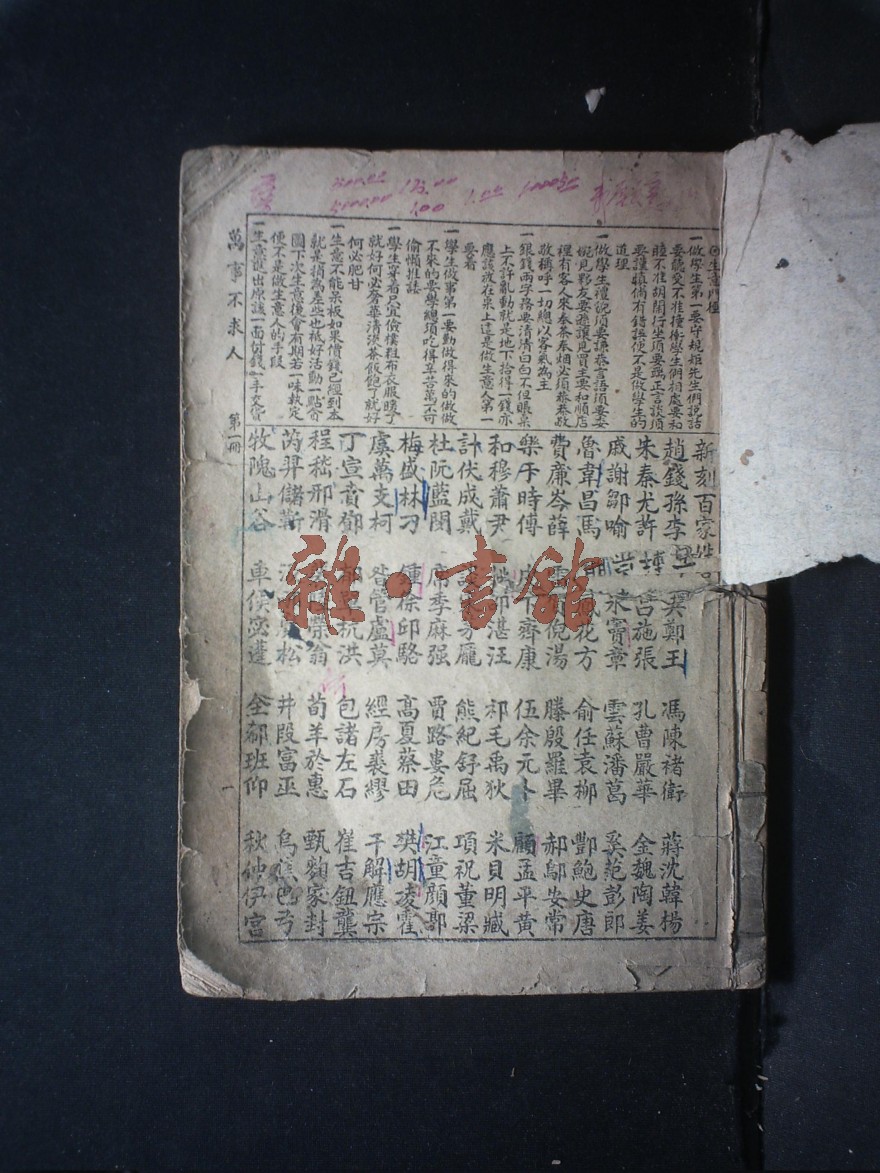 ⊙生意門徑
一做學生第一要守規矩先生們說話
要聽受不准撞衝學生們相處要和
睦不准胡鬧行坐須要端正言談須
要謹慎倘有錯誤便不是做學生的
道理
一做學生禮貌須要謙恭言語須要委
婉見夥友要遜讓見買主要和順店
裡有客人來奉茶奉烟必須恭恭敬
敬稱呼一切總以客氣為主
一銀錢兩字務要清清白白不但賬桌
上不許亂動就是地下拾得一錢亦
應該放在桌上這是做生意人第一
要着
一學生做事第一要勤做得來的做做
不來的要學總須吃得辛苦萬不可
偷懶推諉
一學生穿着只宜儉樸粗布衣服暖了
就好何必奢華清淡茶飯飽了就好
何必肥甘
一生意不能呆板如果價錢已經到本
就是稍為差些也祗好活動一點
圖下次生意後會有期若一味執定
便不是做生意人的手段
一生意進出原該一面付錢一手交貨
新刻百家姓
趙錢孫李 吳鄭王 馮陳褚衛 蔣沈韓楊
朱秦尤許 呂施張 孔曹嚴華 金魏陶姜
戚謝鄒喻 水竇章 雲蘇潘葛 奚范彭郎
魯韋昌馬 花方 俞任袁柳 酆鮑史唐
費廉岑薛 倪湯 滕殷羅畢 郝鄔安常
樂于時傅 皮卞齊康 伍余元卜 顧孟平黃
和穆蕭尹 湛汪 祁毛禹狄 米貝明臧
計伏成戴 談 龐 熊紀舒屈 項祝董梁
杜阮藍閔 席季麻强 賈路婁危 江童顏郭
梅盛林刁 鍾徐邱駱 高夏蔡田 樊胡凌霍
虞萬支柯 昝管盧莫 經房裘繆 干解應宗
丁宣賁鄧 杭洪 包諸左石 崔吉鈕龔
程嵇邢滑 榮翁 荀羊於惠 甄麴家封
芮羿儲靳 松 井段富巫 烏焦巴弓
牧隗山谷 車侯宓蓬 全郗班仰 秋仲伊宮
萬事不求人 第一冊 一
雜·書館